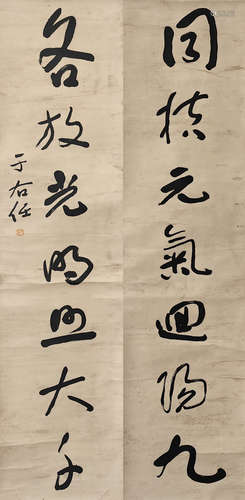 同扶元氣回陽九
各放光明照大千
于右任